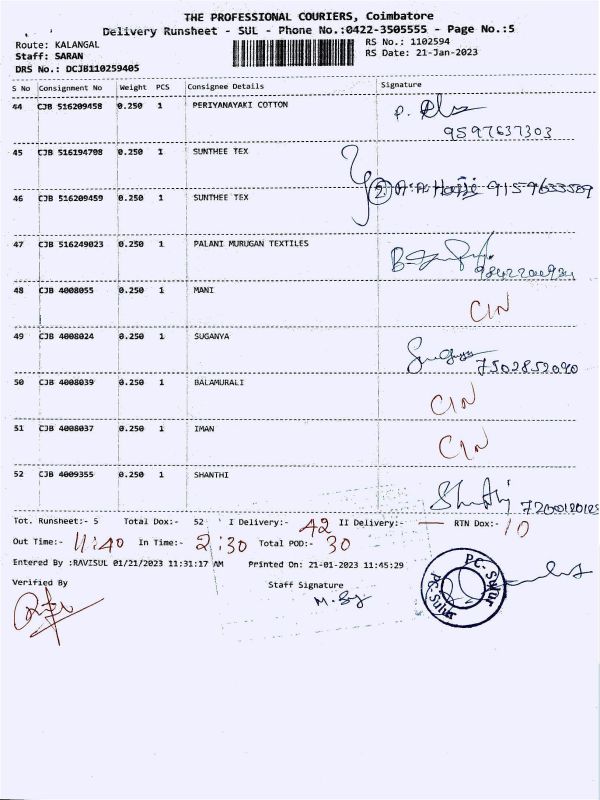 THE PROFESSIONAL COURIERS, Coimbatore
Delivery Runsheet - SUL - Phone No.:0422-3505555 - Page No.:5
Route: KALANGAL RS No.: 1102594
Staff: SARAN RS Date: 21-Jan-2023
DRS No.: DCJB110259405
S No Consignment No Weight PCS Consignee Details Signature
44 CJB 516209458 0.250 1 PERIYANAYAKI COTTON
9597637303
45 CJB 516194708 0.250 1 SUNTHEE TEX
46 CJB 516209459 0.250 1 SUNTHEE TEX 2 9159633589
47 CJB 516249023 0.250 1 PALANI MURUGAN TEXTILES
48 CJB 4008055 0.250 1 MANI CIN
49 CJB 4008024 0.250 1 SUGANYA
7502852090
50 CJB 4008039 0.250 1 BALAMURALI CIN
51 CJB 4008037 0.250 1 IMAN CIN
52 CJB 4009355 0.250 1 SHANTHI Shanthi
Tot. Runsheet:- 5 Total Dox:- 52 I Delivery:- 42 II Delivery:- — RTN Dox:- 10
Out Time:- 11:40 In Time:- 2:30 Total POD:- 30
Entered By :RAVISUL 01/21/2023 11:31:17 AM Printed On: 21-01-2023 11:45:29
Verified By Staff Signature
PC-Sulur
PC-Sulur